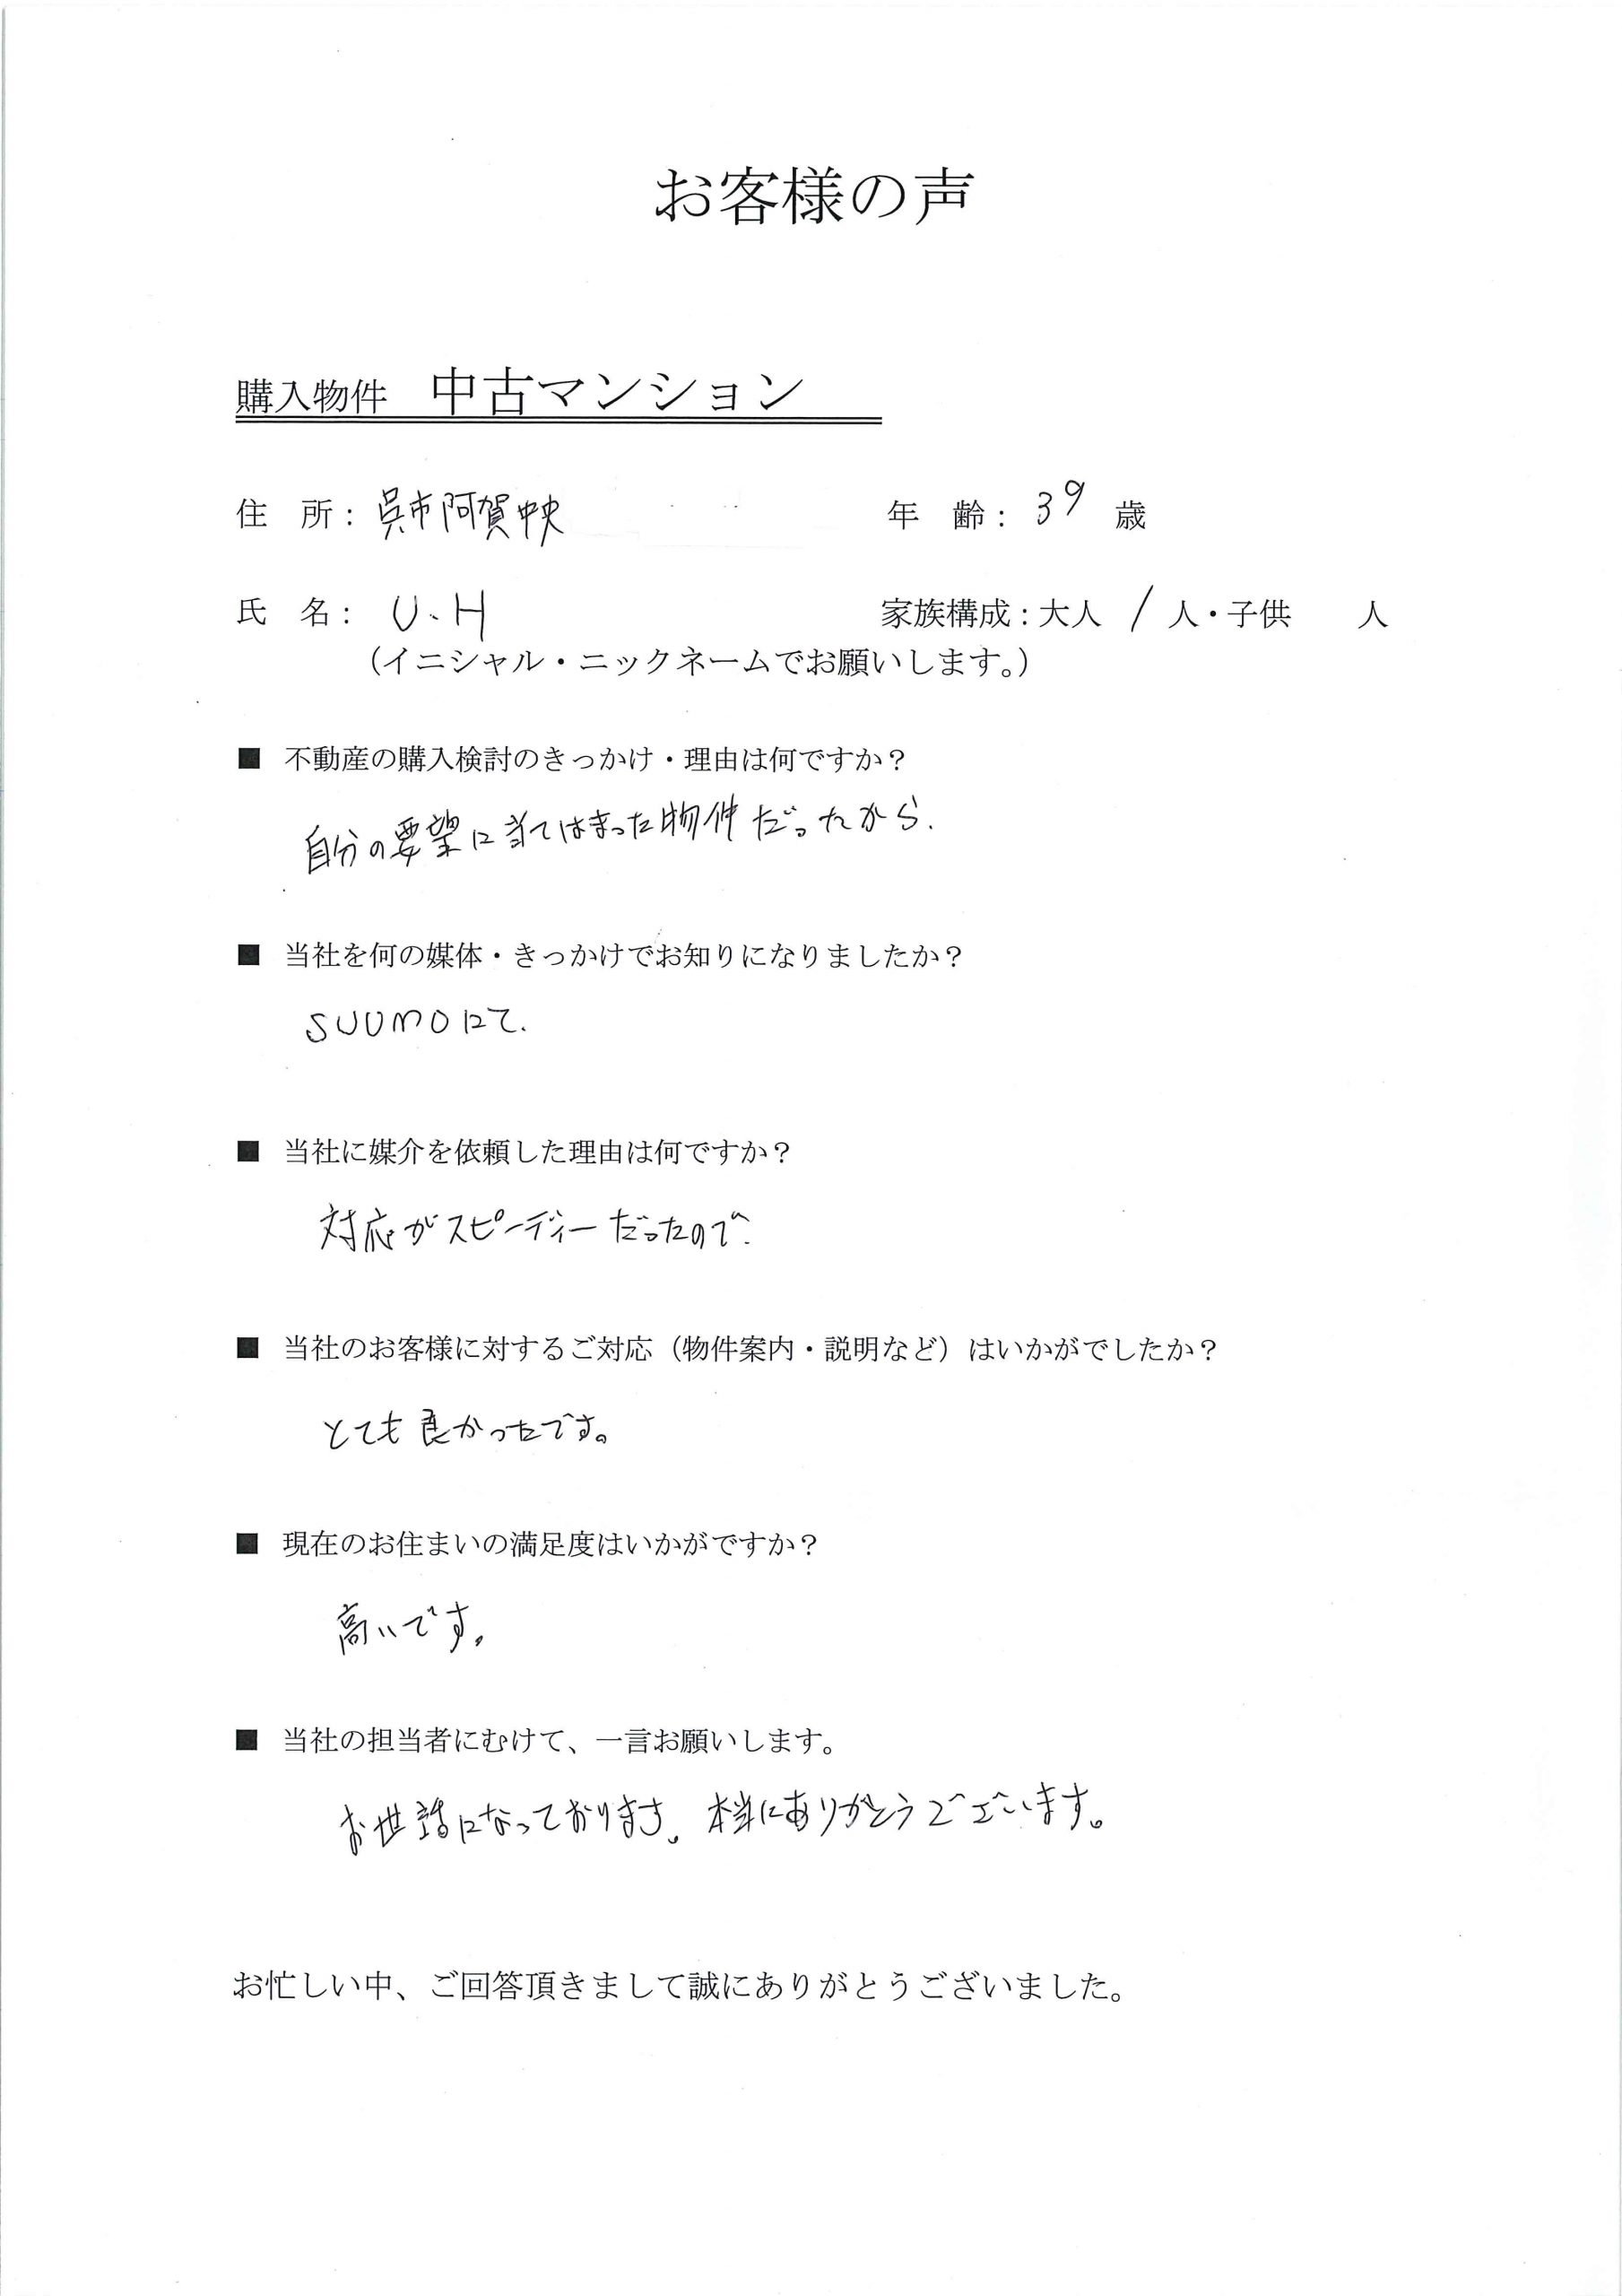 お客様の声
購入物件 中古マンション
住 所: 呉市阿賀中央 年 齢: 39 歳
氏 名: U.H 家族構成:大人 1 人・子供 人
(イニシャル・ニックネームでお願いします。)
■ 不動産の購入検討のきっかけ・理由は何ですか?
自分の要望に当てはまった物件だったから.
■ 当社を何の媒体・きっかけでお知りになりましたか?
SUUMOにて.
■ 当社に媒介を依頼した理由は何ですか?
対応がスピーディーだったので.
■ 当社のお客様に対するご対応(物件案内・説明など)はいかがでしたか?
とても良かったです。
■ 現在のお住まいの満足度はいかがですか?
高いです。
■ 当社の担当者にむけて、一言お願いします。
お世話になっております。本当にありがとうございます。
お忙しい中、ご回答頂きまして誠にありがとうございました。